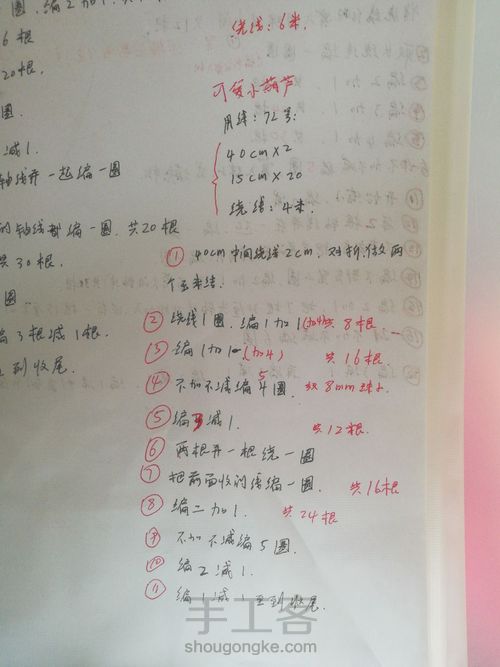 圈.编2加1.
6根
20根.
圈.
减1.
轴线并一起编一圈
的轴线都编一圈.共20根
共30根.
圈
编3根减1根.
到收尾.
绕线:6米.
可爱小葫芦
用线:72号:
40cm×2
15cm×20
绕线:4米.
① 40cm中间绕线2cm.对折.做两
个玉米结.
② 绕线1圈.编1加1(加4)共8根
③ 编1加1(加4) 共16根.
④ 不加不减编4圈. 5 放8mm珠
⑤ 编3减1. 共12根.
⑥ 两根并一根绕一圈
⑦ 把前面收的线编一圈. 共16根
⑧ 编二加1. 共24根
⑨ 不加不减编5圈.
⑩ 编2减1.
⑪ 编1减1至到收尾.
手工客
shougongke.com